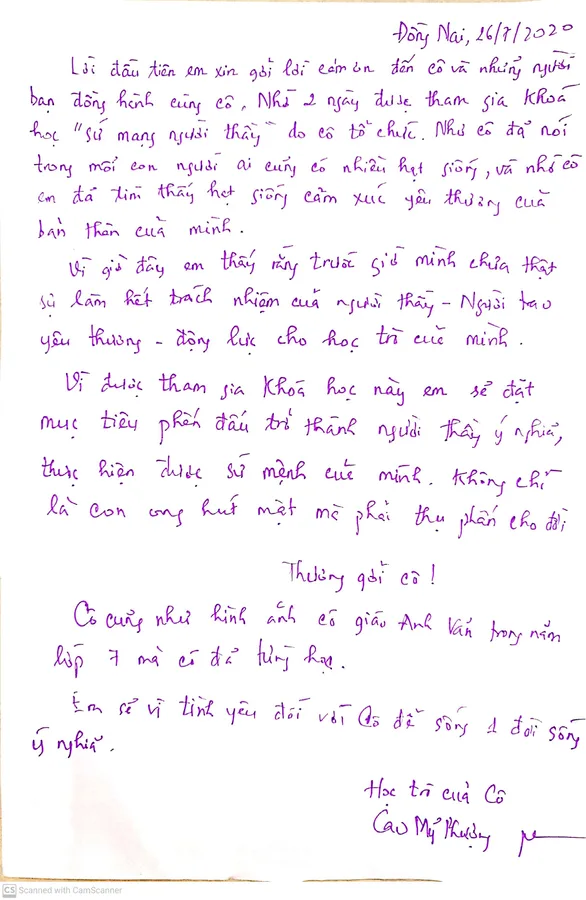 Đồng Nai, 26/7/2020
Lời đầu tiên em xin gởi lời cảm ơn đến cô và những người
bạn đồng hành cùng cô, Nhờ 2 ngày được tham gia Khoá
học "sứ mạng người thầy" do cô tổ chức. Như cô đã nói
trong mỗi con người ai cũng có nhiều hạt giống, và nhờ cô
em đã tìm thấy hạt giống cảm xúc yêu thương của
bản thân của mình.
Vì giờ đây em thấy rằng trước giờ mình chưa thật
sự làm hết trách nhiệm của người thầy - Người trao
yêu thương - động lực cho học trò của mình.
Vì được tham gia Khoá học này em sẽ đặt
mục tiêu phấn đấu trở thành người thầy ý nghĩa,
thực hiện được sứ mệnh của mình. Không chỉ
là con ong hút mật mà phải thụ phấn cho đời
Thương gởi cô!
Cô cũng như hình ảnh cô giáo Anh Văn trong năm
lớp 7 mà cô đã từng học.
Em sẽ vì tình yêu đối với Cô để sống 1 đời sống
ý nghĩa.
Học trò của Cô
Cao Mỹ Phượng
CS Scanned with CamScanner